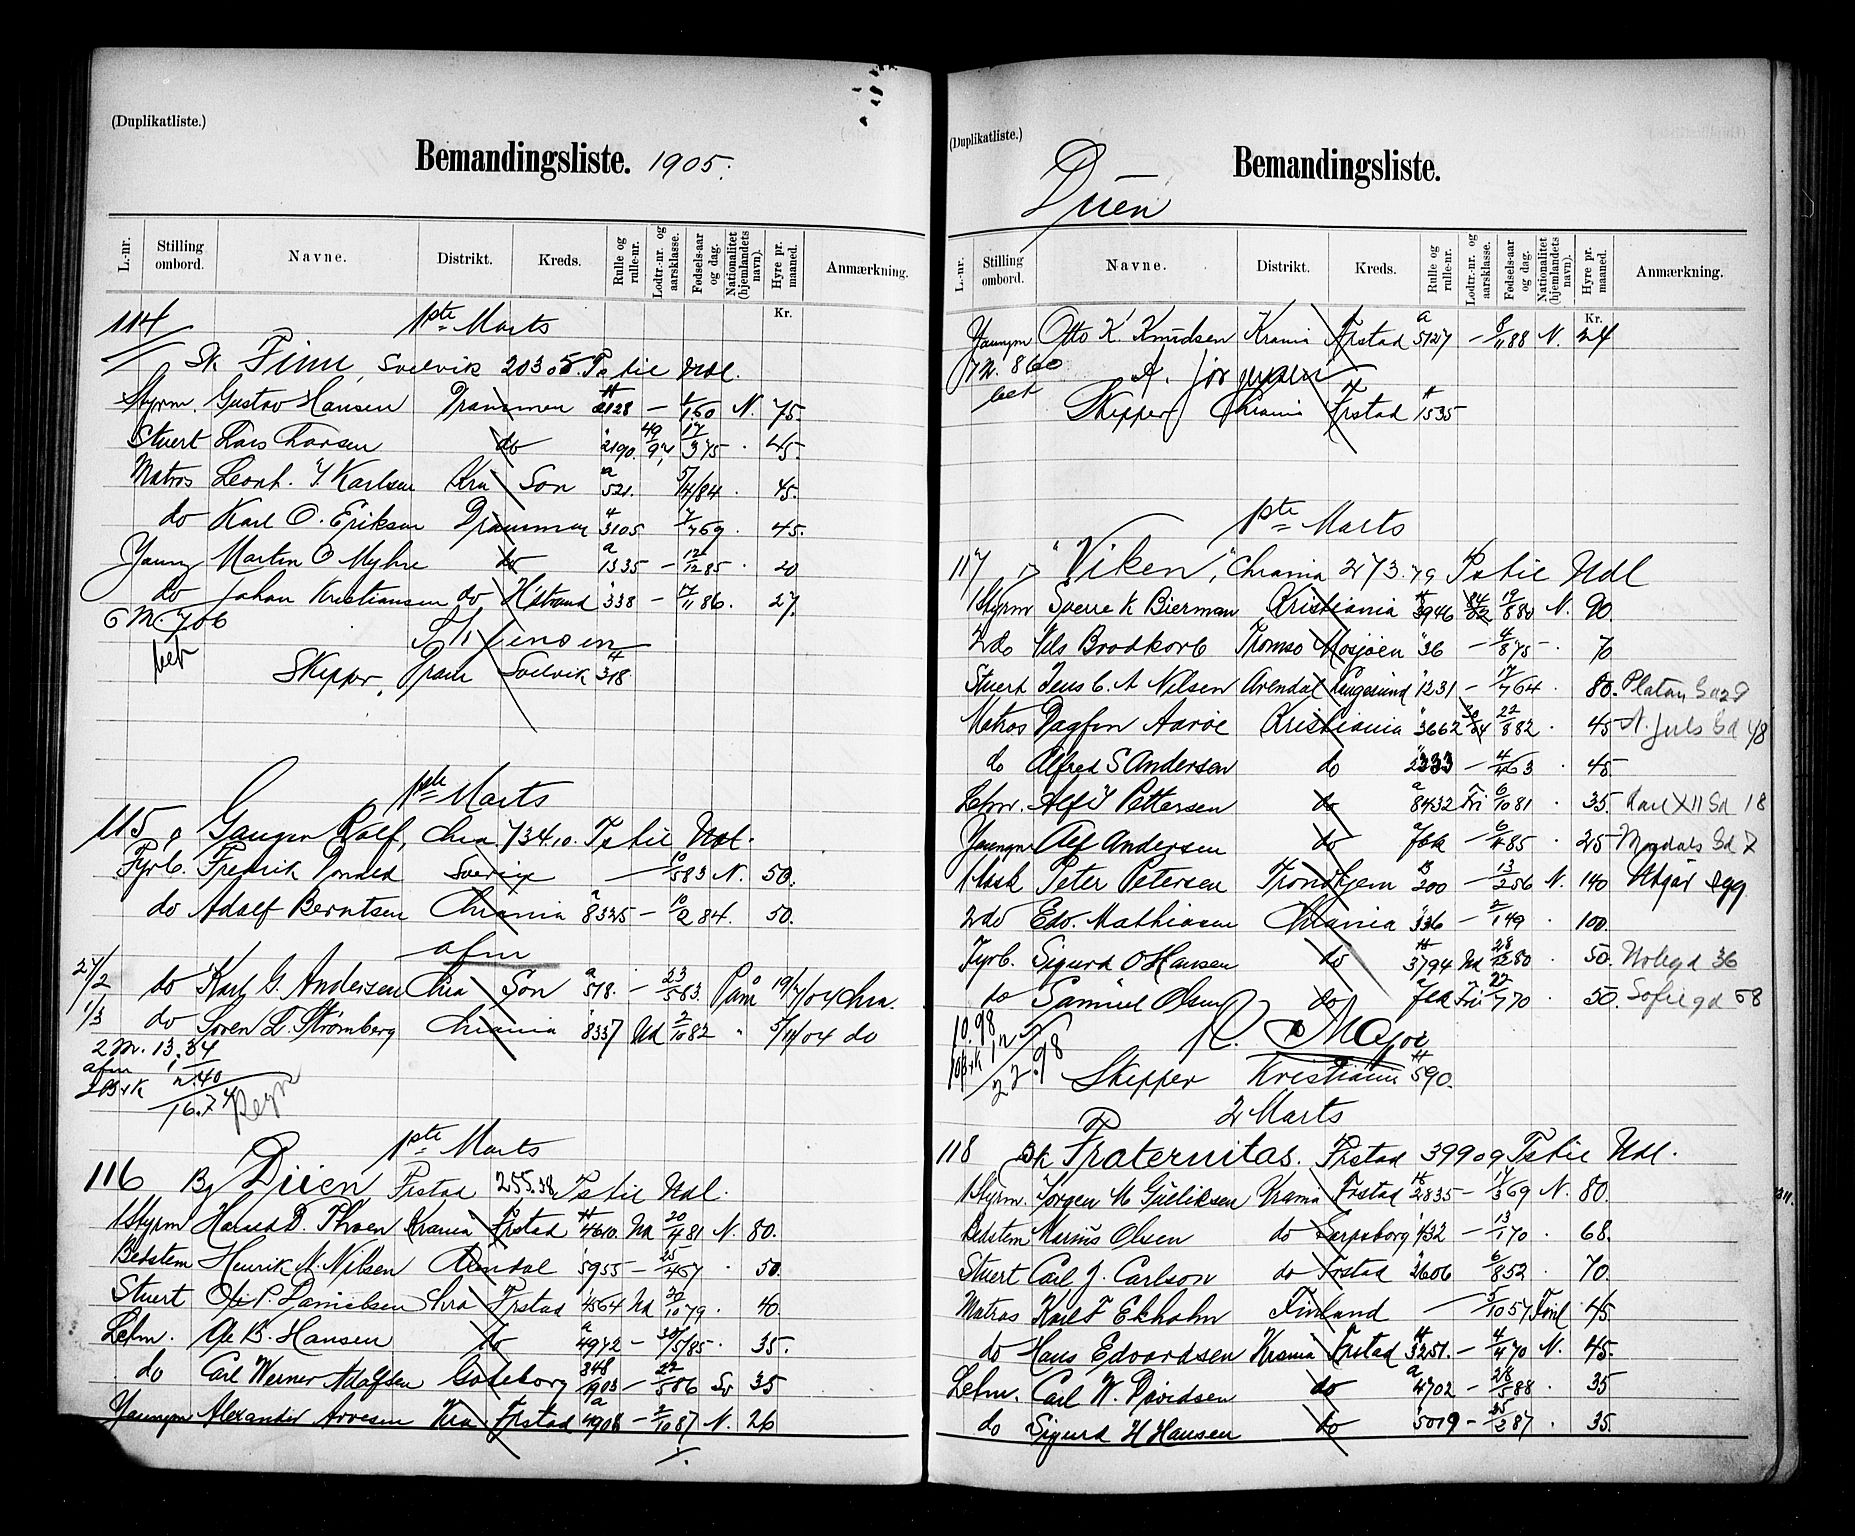 (Duplikatliste.)
Bemandingsliste. 1905.
L.-nr. Stilling ombord. Navne. Distrikt. Kreds. Rulle og rulle-nr. Lodtr.-nr. og aarsklasse. Fødsels-aar og dag. Nationalitet (hjemlandets navn). Hyre pr. maaned. Anmærkning.
Kr.
114 1ste Marts
Sk. Finn, Svelvik 203 05 Ts til Udl.
Styrm. Gustav Hansen Drammen 2128 — 1/1 60 N. 75.
Stuert Lars Larsen do 2190 49/97 17/3 75 . 45.
Matros Leonh. Karlsen Kra Son a 521. 5/4 84 . 45.
do Karl O. Eriksen Drammen 3105 1/7 69 . 45.
Youngm Martin O Myhre do a 1335 — 12/12 85 . 20
do Johan Kristiansen do 338 — 17/11 86. 27.
6 M. 7 06
bet Skipper, Dram Svelvik 318.
1ste Marts
115 Ganger Rolf, Chra 734.10. Ts til Udl.
Fyrb. Fredrik Sverige — 10/5 83 N. 50.
do Adolf Berntsen Chrania a 8325 — 10/2 84. 50.
afm
27/2 do Karl G. Andersen Chra Son a 518. — 23/5 63. Paam 19/7/04 Chra.
1/3 do Soren L. Strømberg Chrania 8337 Ud 2/10 82 " 5/11/04 do
2 M. 13.34
afm 1
2 B+K 2.40
16.74
1ste Marts
116 Bg Duen Frstad 255.38 Ts til Udl.
1Styrm Harald D. Thoen Krania Frstad 4610 Ud 20/4 81 N. 80.
Bedstem Henrik N. Nilsen Arendal 5955 — 25/4 67 . 50.
Stuert Ole P. Danielsen Kra Frstad 4564 Ud 20/10 79 . 40.
Letm. Ole B. Hansen do a 4972 — 30/5 85 . 35.
do Carl Werner Adolfsen Goteborg 348/1903 — 22/5 86 Sv 35
Youngm Alexander Arvesen Kra Frstad a 4908 — 2/10 87 N. 26
(Duplikatliste.)
Bemandingsliste.
Duen
L.-nr. Stilling ombord. Navne. Distrikt. Kreds. Rulle og rulle-nr. Lodtr.-nr. og aarsklasse. Fødsels-aar og dag. Nationalitet (hjemlandets navn). Hyre pr. maaned. Anmærkning.
Kr.
Youngm Otto K. Knudsen Krania Frstad a 5127 — 8/11 88 N. 24
7 M. 8 60 A. Jörgensen
bet Skipper Chrania Frstad 1535
1ste Marts
117 "Viken", Chrania 273.79 Ts til Udl
1Styrm Sverre K Bierman Kristiania 3946 84/02 19/8 80 N. 90.
2 do Nils Brodkorb Tromsø Mosjøen 36 — 4/8 75 - . 70
Stuert Jens C. A Nilsen Arendal Langesund 1231 — 17/7 64 . 80. Platou Gd 29
Matros Dagfin Aarøe Kristiania 3662 30/04 22/8 82 . 45 N. Juels Gd 48
do Alfred S Andersen do 2333 — 63 . 45
Letm. Alf Pettersen do a 8432 Fri 6/10 81 . 35 Karl XII Gd 18
Youngm Alf Andersen do — 6/4 85 . 25 Mogdals Gd 7
1 Mask Peter Petersen Trondhjem B 200 — 13/2 56 N. 140
2 do Edv. Mathiasen Chrania 336 — 2/1 49 . 100.
Fyrb. Sigurd O Hansen do 3794 Ud 28/12 80 . 50.
do Samuel Olsen do Fri 22/7 70 . 50. Sofiegd 58
10.98
10 B+K 12
22.98 Skipper Kristiania 590.
2 Marts
118 Bk Fraternitas. Frstad 399 09 Ts til Udl.
1Styrm. Jorgen M Gulliksen Krania Frstad 2835 — 17/3 69 N. 80.
Bedstem Marius Olsen do Sarpsborg 432 — 13/1 70 . 68.
Stuert Carl J. Carlson do Frstad 2606 6/8 52 . 70.
Matros Karl F Ekholm Finland — 5/10 57 Finl 45
do Hans Edvardsen Krania Frstad 3251. — 4/4 70 N. 45.
Letm. Carl W. Davidsen do a 4702 — 28/5 88 . 35
do Sigurd H Hansen do 5019 — 25/2 87 . 35.